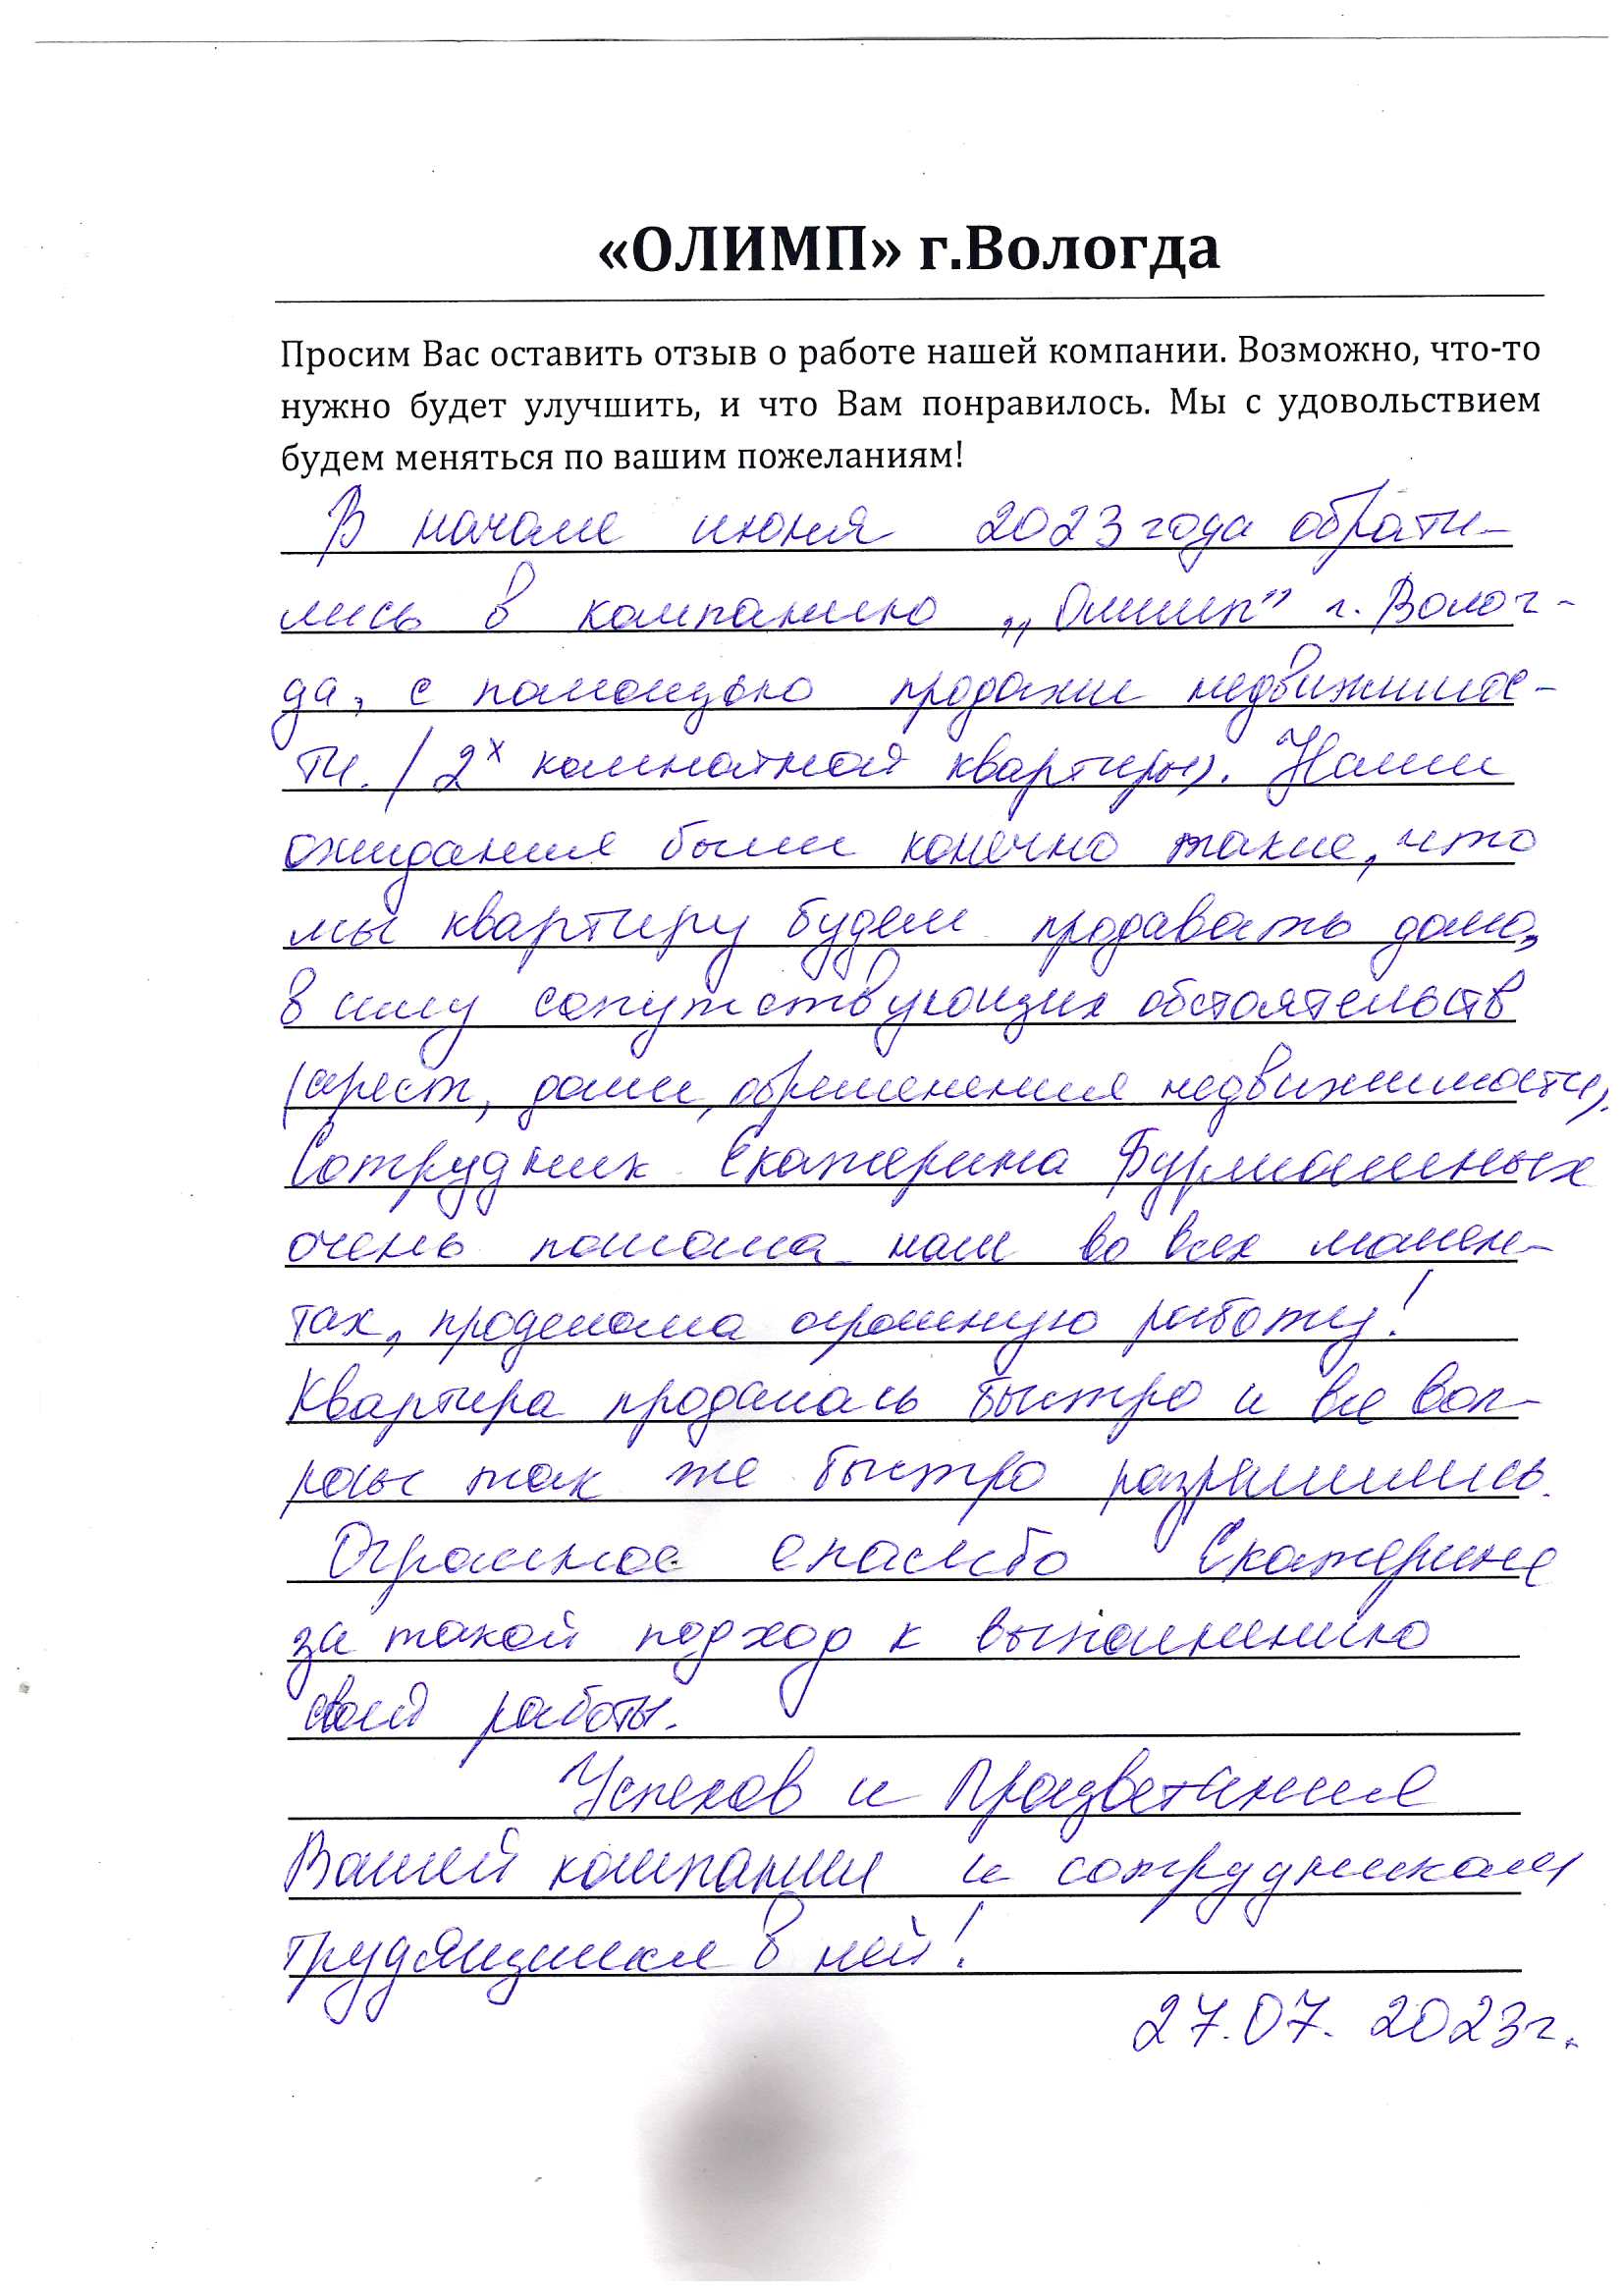 «ОЛИМП» г.Вологда
Просим Вас оставить отзыв о работе нашей компании. Возможно, что-то
нужно будет улучшить, и что Вам понравилось. Мы с удовольствием
будем меняться по вашим пожеланиям!
В начале июня 2023 года обрати-
лись в компанию „Олимп” г. Волог-
да, с помощью продажи недвижимос-
ти. (2х комнатной квартиры). Наши
ожидания были конечно такие, что
мы квартиру будем продавать долго,
в силу сопутствующих обстоятельств
(арест, доли, обременения недвижимости).
Сотрудник Екатерина Бурмашных
очень помогла нам во всех момен-
тах, проделала огромную работу!
Квартира продалась быстро и все воп-
росы так же быстро разрешились.
Огромное спасибо Екатерине
за такой подход к выполнению
своей работы.
Успехов и Процветания
Вашей компании и сотрудникам
трудящимся в ней!
27.07.2023г.